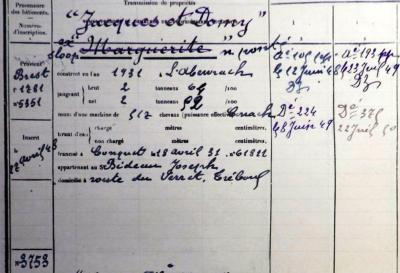 Provenance
des bâtiments.
Numéro
d'inscription.
Transmission de propriétés
"Jacques et Domy"
ex
sloop "Marguerite" n. ponté
construit en l'an 1931 à l'Aberwrach
jaugeant brut 2 tonneaux 69 /100
net 2 tonneaux 69 /100
muni d'une machine de 5/7 chevaux (puissance effective)
tirant d'eau chargé mètres centimètres,
non chargé mètres centimètres,
francisé à Conquet le 18 avril 31 n° 61811
appartenant au Sr Bideau Joseph
domicilié à route du Verret, Tréboul
Brest
n° 1781
n° 5351
Inscrit
27 avril 48
n° 3753
le 12 Juin 48
Dé 224
le 8 Juin 49
Dé 375
22 Juil 50